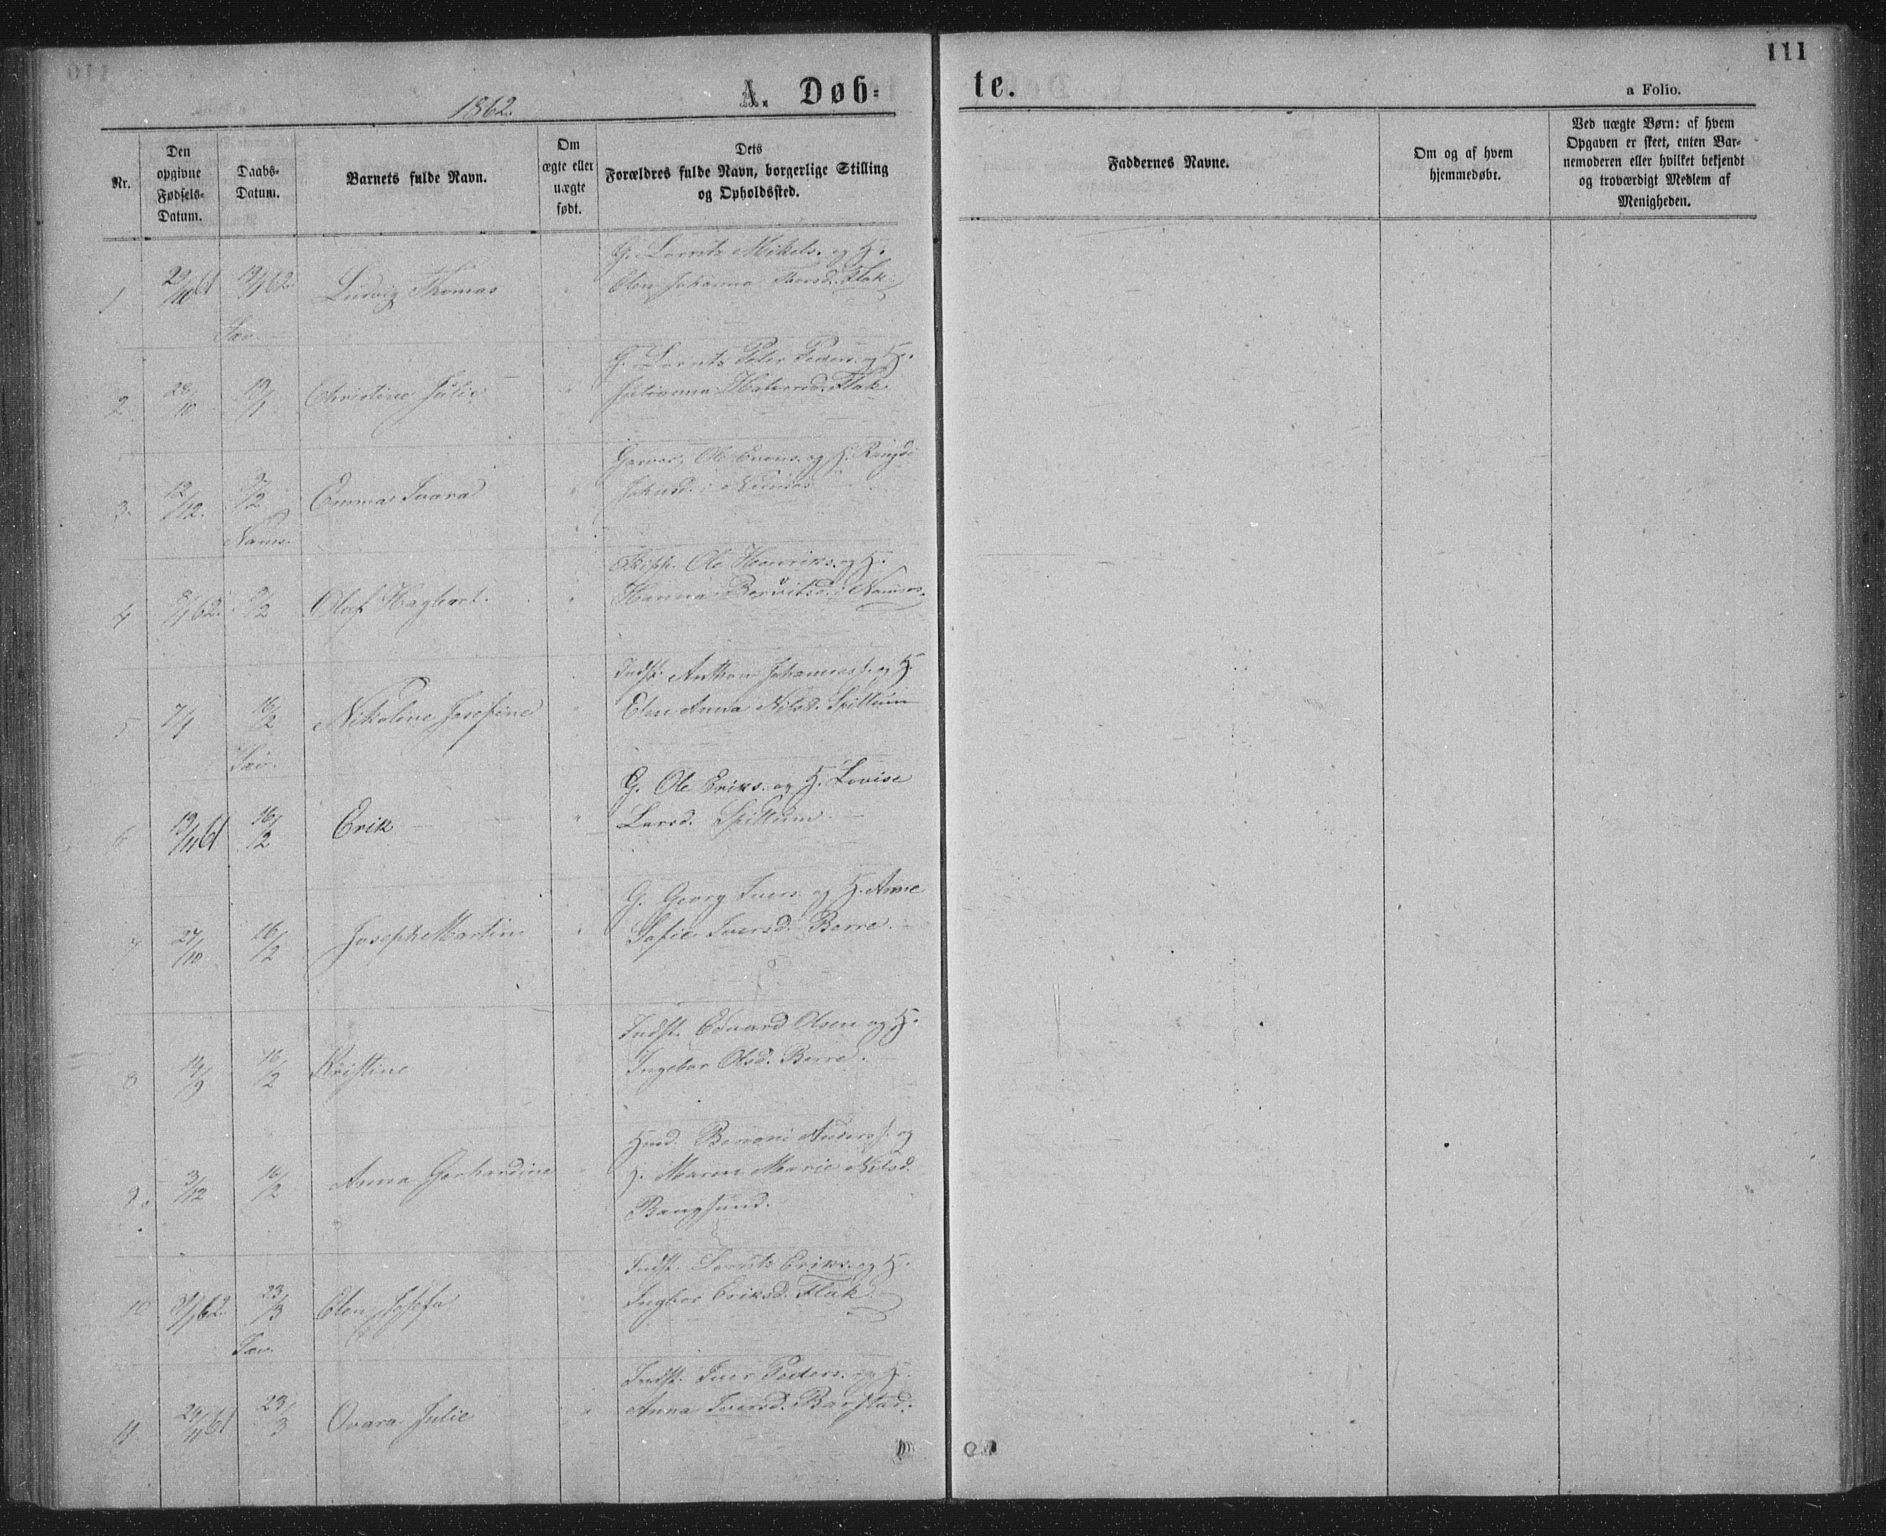 111
1862.
A. Døb-
te.
a Folio.
Nr.
Den
opgivne
Fødsels-
Datum.
Daabs-
Datum.
Barnets fulde Navn.
Om
ægte eller
uægte
født.
Dets
Forældres fulde Navn, borgerlige Stilling
og Opholdssted.
Faddernes Navne.
Om og af hvem
hjemmedøbt.
Ved uægte Børn: af hvem
Opgaven er skeet, enten Bar-
nemoderen eller hvilket bekjendt
og troværdigt Medlem af
Menigheden.
G. Lornts Mikels. og H.
1 /10 61 19/1 62. Ludvig Thomas " Elen Johanna Flak.
Sæv.
G. Lornts Peter Peders. og H.
2 /10 19/1 Christine Julie " Julianna Flak
Garver. Ole og H.
3. 12/12. 9/2 Emma " i Namsos
Nams.
Skipp. Ole Henriks. og H.
4 /1 62. 9/2 Olaf Hagbart. " Hanna i Namsos.
Indst. Anthon Johanness. og H.
5 7/1 16/2 Nikoline Josefine " Elen Anna Nilsd. Spillum
Sæv.
G. Ole Eriks. og H. Lovise
6 19/11 61 16/2 Erik " Larsd. Spillum.
G. Georg Ivers. og H. Anne
7 27/10 16/2 Joseph Martin " Sofie Iversd. Berre.
Indst. Edvard Olsen og H.
8 14/9 16/2 Kristine Ingebor Olsd. Berre.
Husd. Benoni Anderss. og
9. 3/12 16/2 Anna Gerhardine H. Maren Marie Nilsd.
Bangsund.
Indst. Lornts Eriks. og H.
10 /1 62. 23/3 Elen Josefa Ingbor Eriksd. Flak
Sæv.
Indst. Iver Peders. og H.
11 29/11 61 23/3 Ovara Julie " Anna Iversd. Barstad.